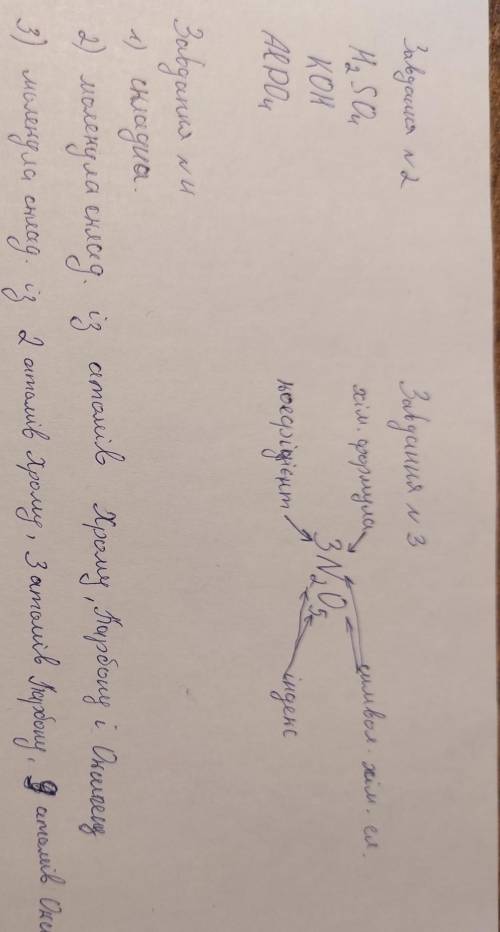 Завдання №2
H₂SO₄
KOH
AlPO₄
Завдання №3
хім. формула
символ. хім. ел.
3N₂O₅
коефіцієнт
індекс
Завдання №4
1) складна.
2) молекула склад. із атомів Хрому, Карбону і Оксигену
3) молекула склад. із 2 атомів Хрому, 3 атомів Карбону, 9 атомів Окси